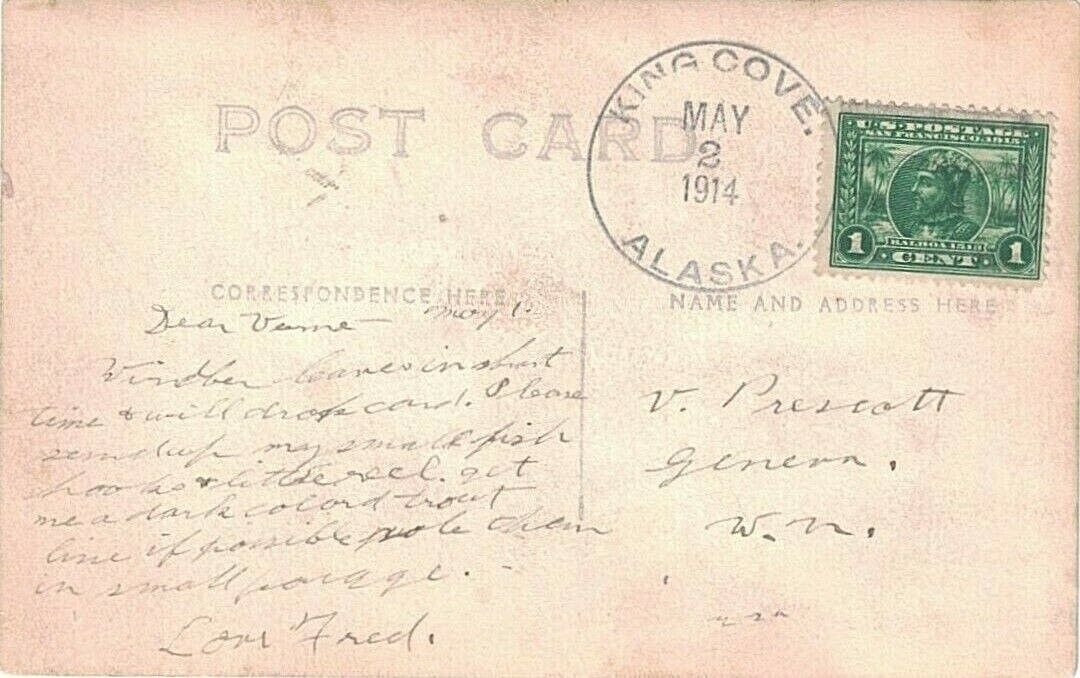 POST CARD
KING COVE.
MAY
2
1914
ALASKA.
U.S. POSTAGE
SAN FRANCISCO 1915
BALBOA 1513
1 CENT 1
CORRESPONDENCE HERE
NAME AND ADDRESS HERE
May 1.
Dear Verne
leaves in short
time & will drop card. Please
send up my small fish
hooks & little reel. get
me a dark colord trout
line if possible them
in small
Love Fred.
V. Prescott
Geneva.
W.N.